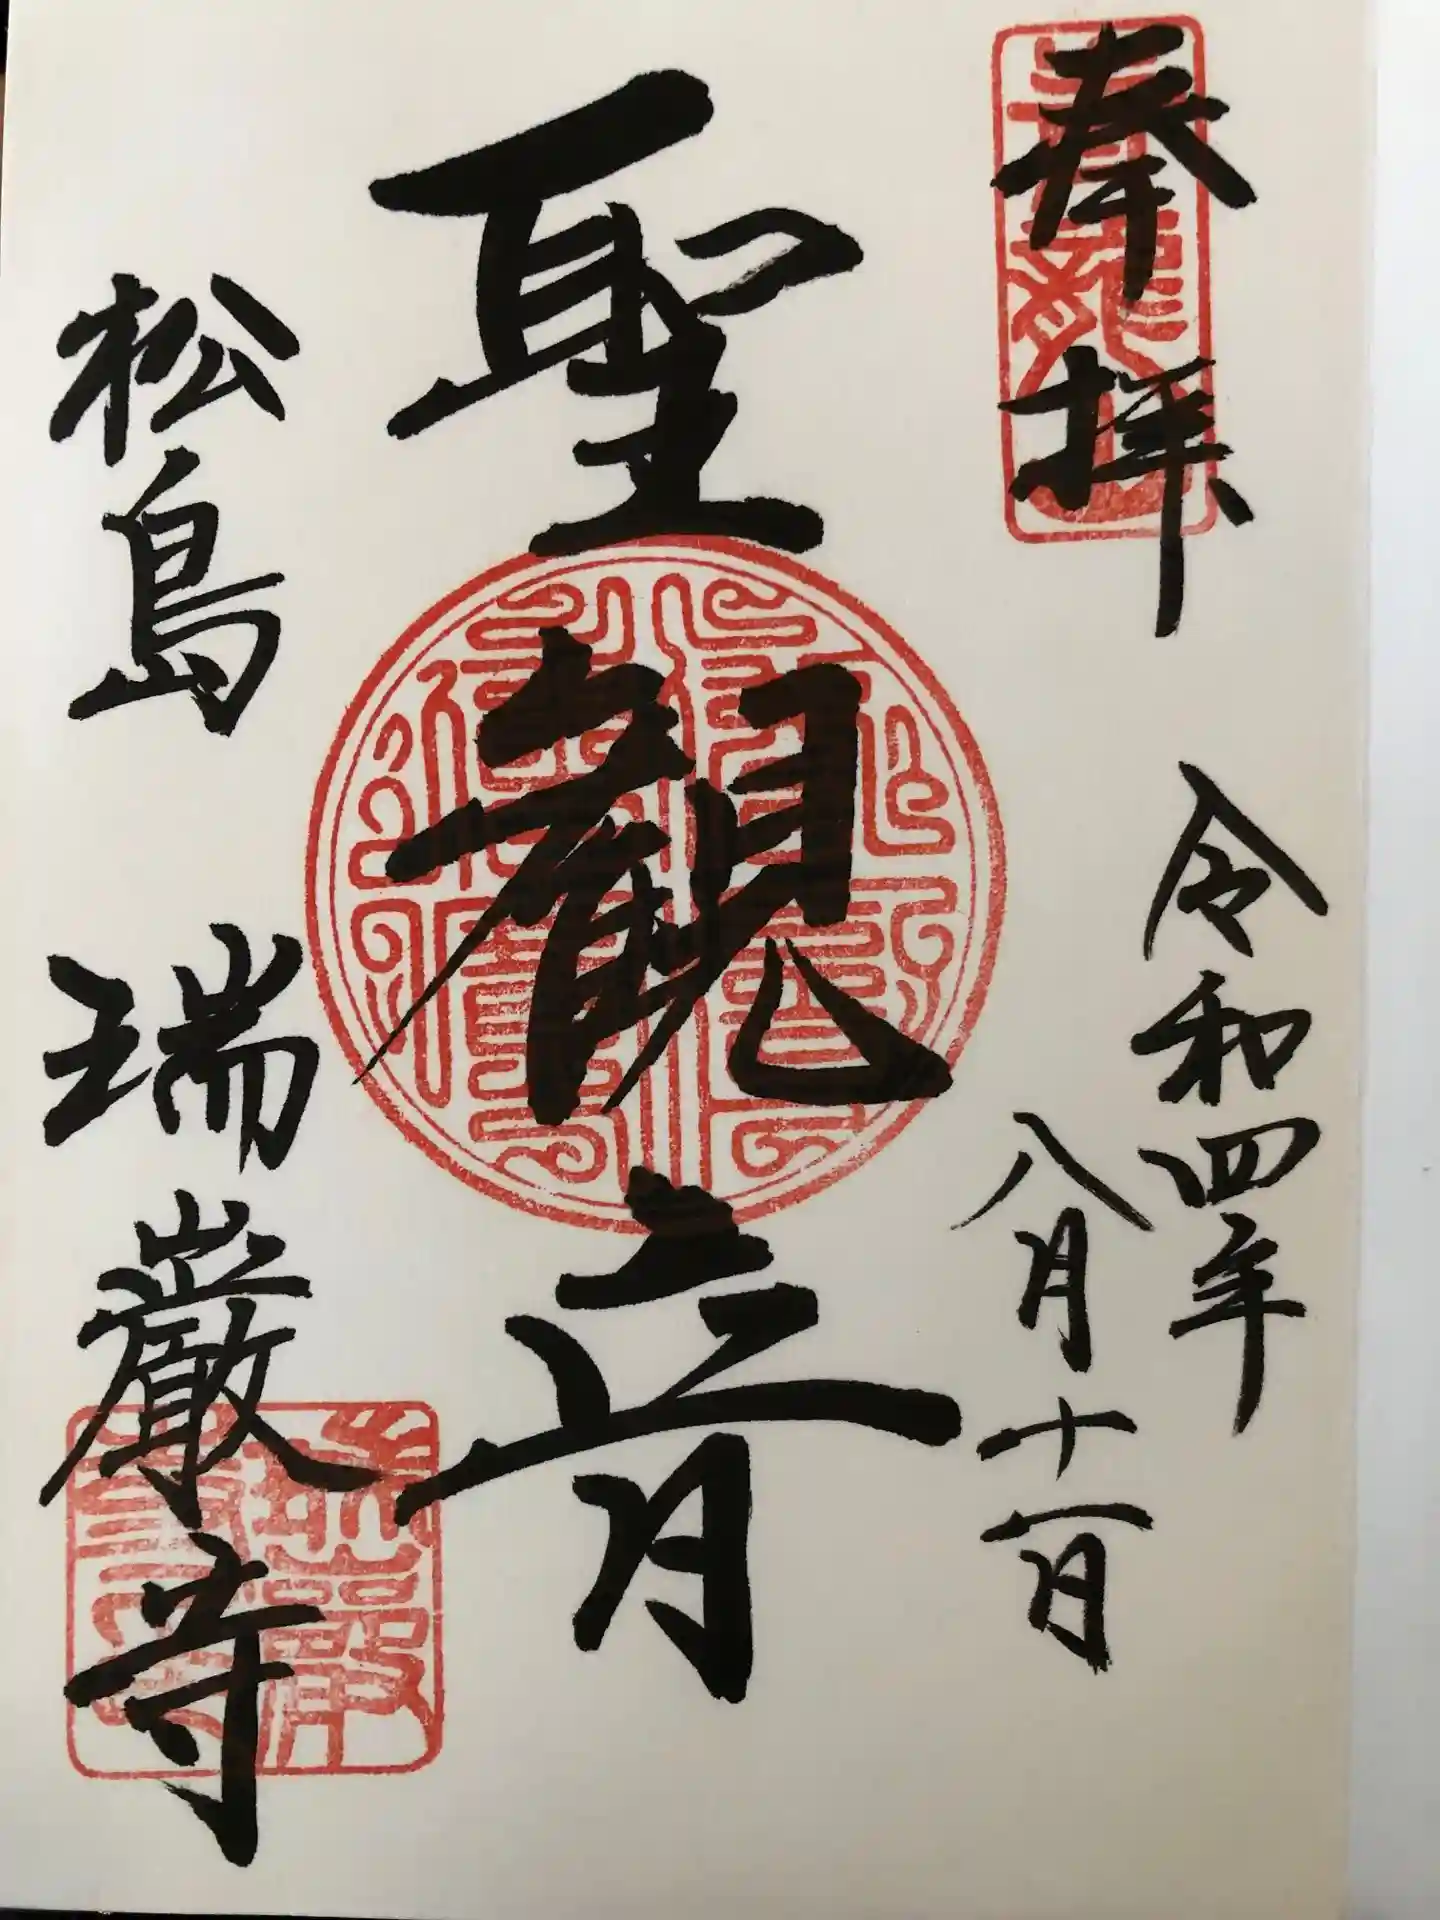 奉拝
令和四年
八月十一日
聖觀音
松島 瑞巖寺